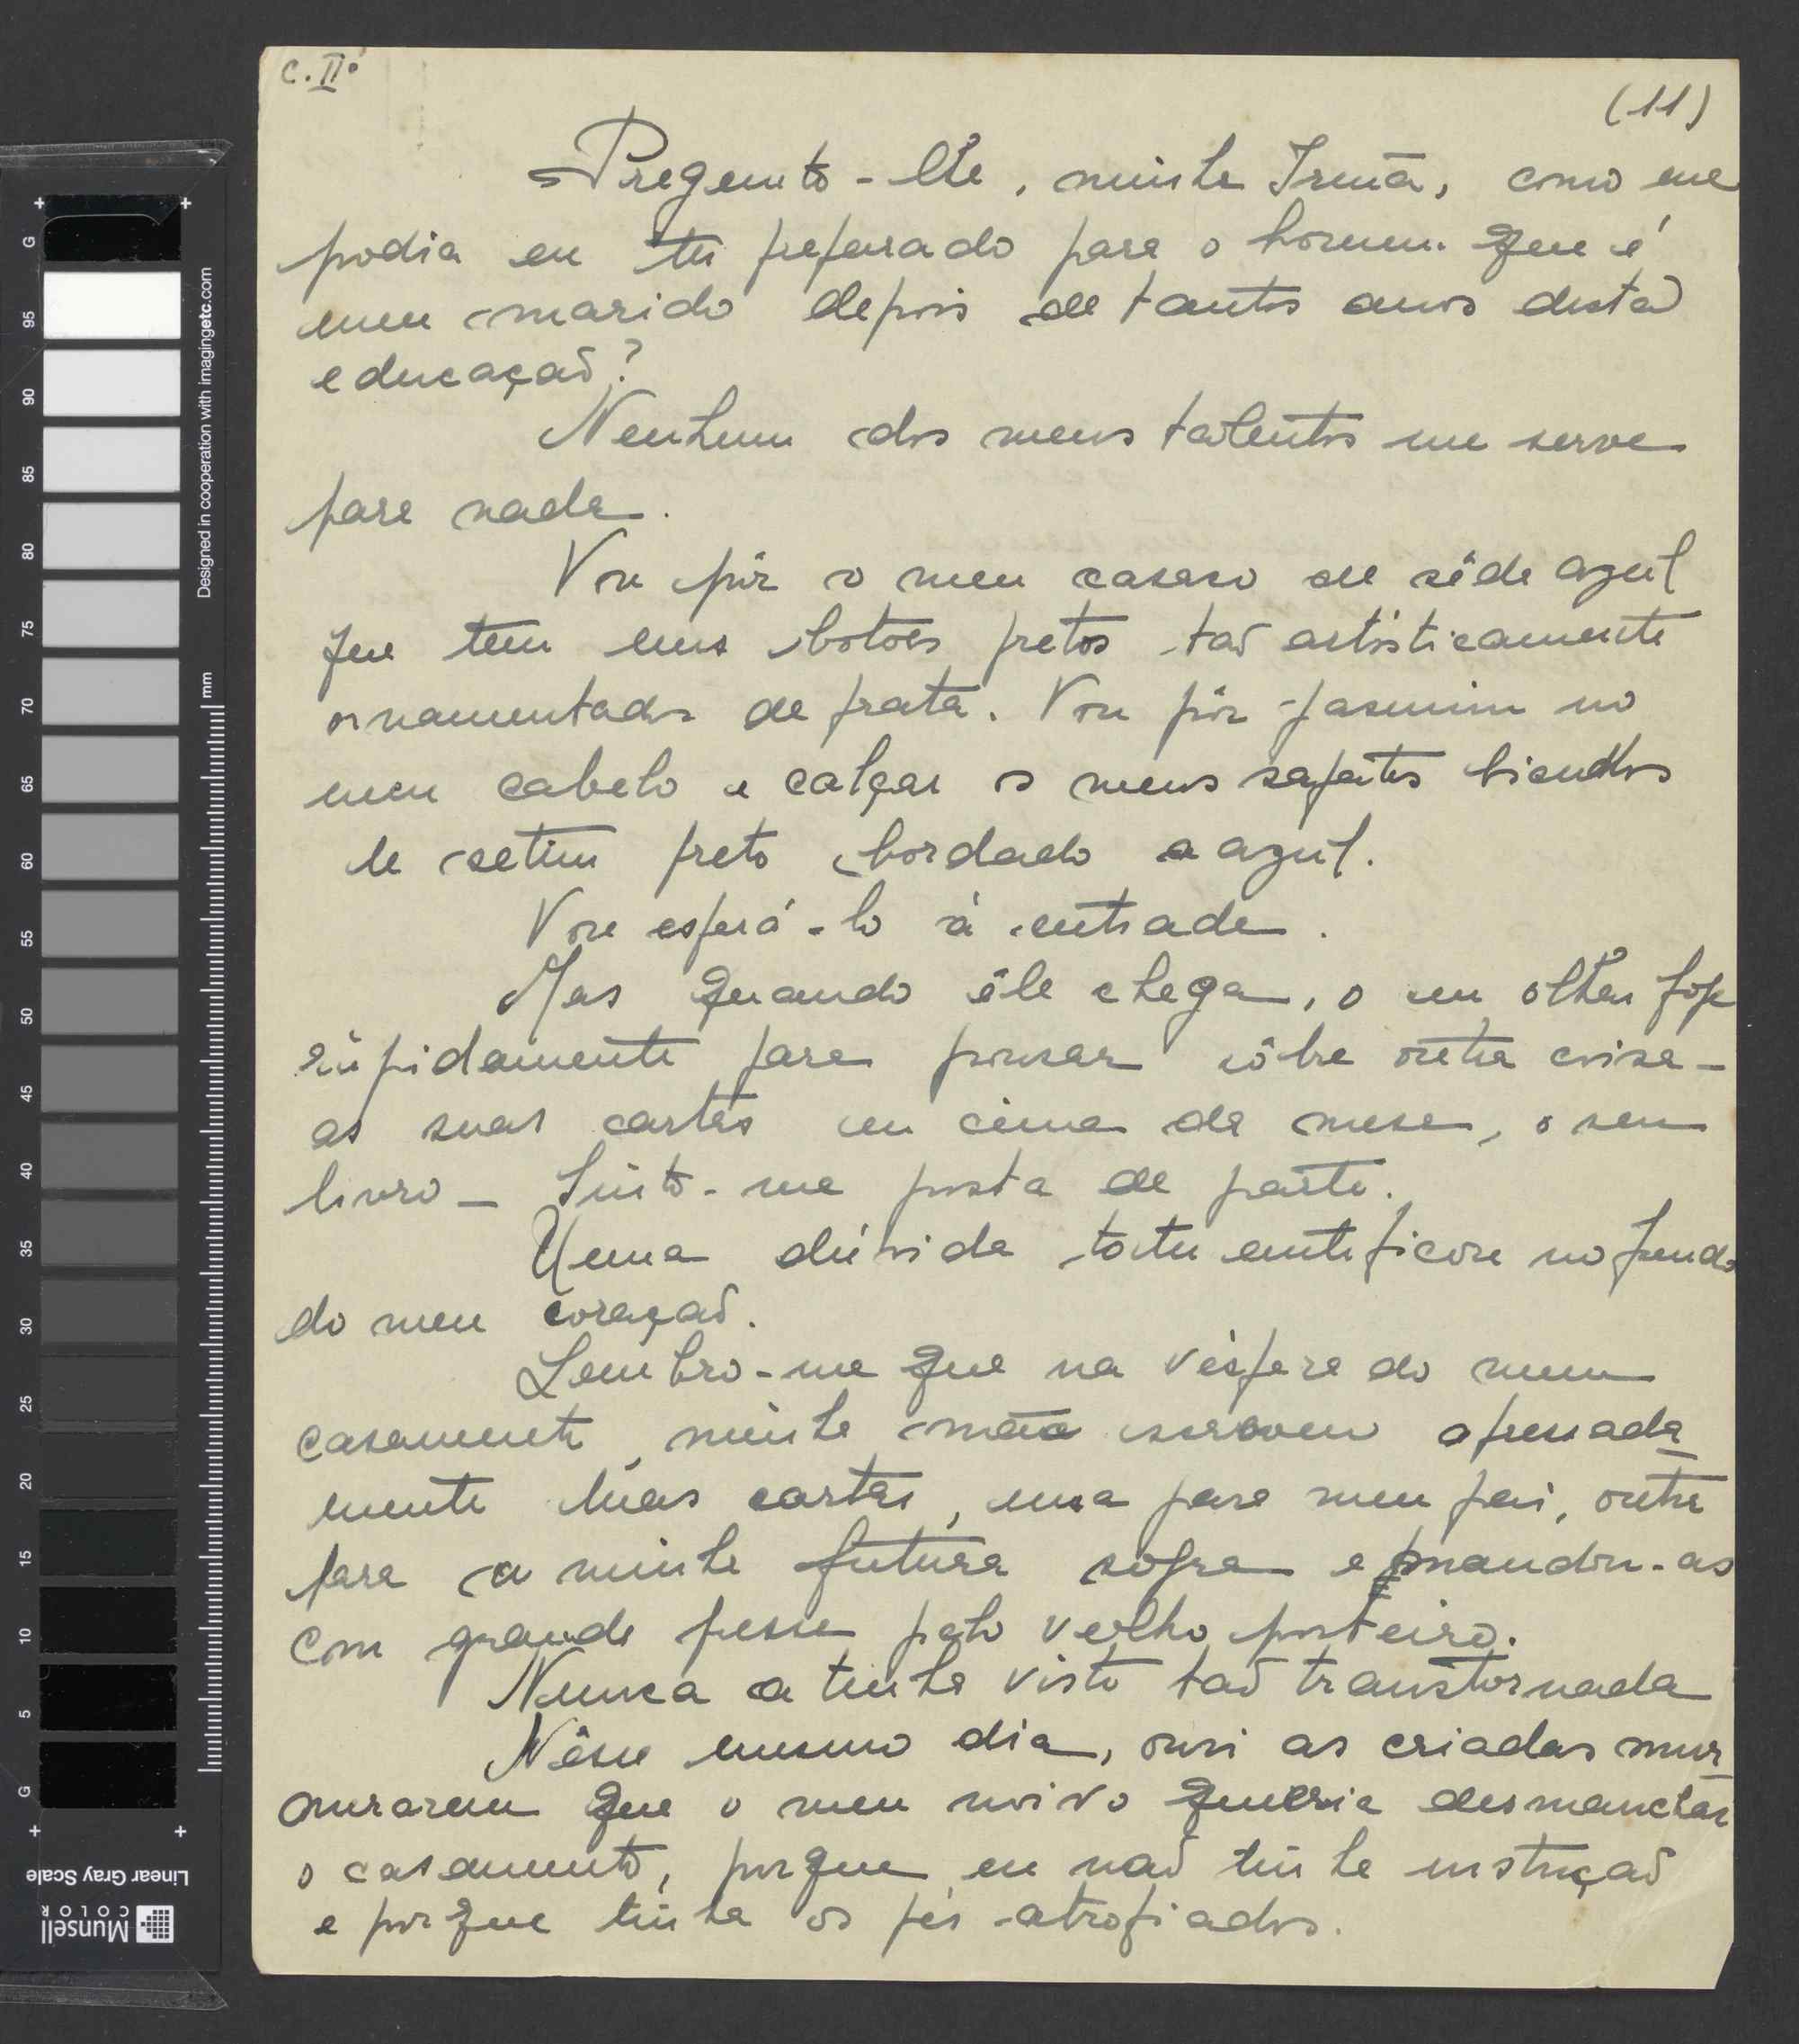 c. IIº
(11)
Pregunto-lhe, minha Irmã, como me
podia eu ter preparado para o homem que é
meu marido depois de tantos anos desta
educação?
Nenhum dos meus talentos me serve
para nada.
Vou pôr o meu casaco de sêda azul
que tem uns botões pretos tão artisticamente
ornamentados de prata. Vou pôr jasmim no
meu cabelo e calçar os meus sapatos bicudos
de setim preto bordado a azul.
Vou esperá-lo à entrada.
Mas quando êle chega, o seu olhar foge
rápidamente para pousar sôbre outra coisa -
as suas cartas em cima da mesa, o seu
livro - Sinto-me posta de parte.
Uma dúvida tortura
do meu coração.
Lembro-me que na véspera do meu
casamento, minha mãe escreveu apressada
mente duas cartas, uma para meu pai, outra
para a minha futura sogra e mandou-as
com grande pressa pelo velho porteiro.
Nunca a tinha visto tão transtornada
Nêsse mesmo dia, ouvi as criadas mur
murarem que o meu noivo queria desmanchar
o casamento, porque eu não tinha instrução
e porque tinha os pés atrofiados.
G
95
90
85
80
75
70
65
60
55
50
45
40
35
30
25
20
15
10
5
G
Designed in cooperation with imagingetc.com
mm
Linear Gray Scale
Munsell
COLOR